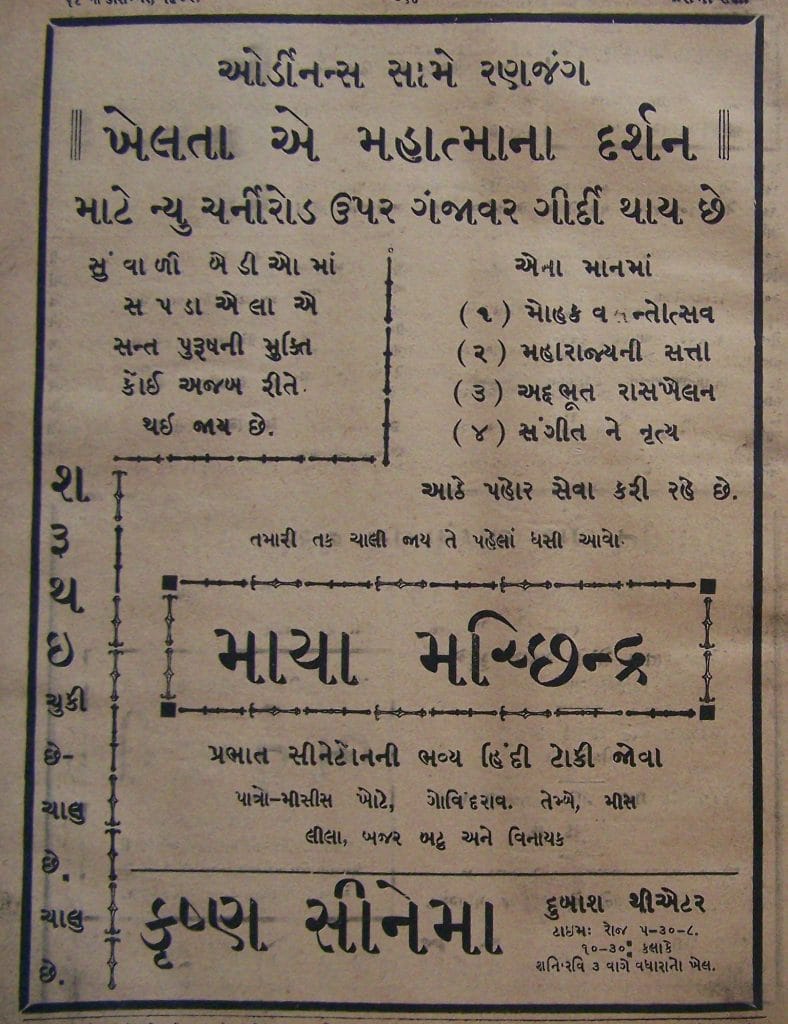 ઓર્ડીનન્સ સામે રણજંગ
ખેલતા એ મહાત્માના દર્શન
માટે ન્યુ ચર્નીરોડ ઉપર ગંજાવર ગીર્દી થાય છે
સુંવાળી બેડીઓમાં
સપડાએલા એ
સન્ત પુરૂષની મુક્તિ
કોઈ અજબ રીતે
થઇ જાય છે.
એના માનમાં
(૧) મોહક વ ન્તોત્સવ
(૨) મહારાજ્યની સત્તા
(૩) અદ્દભૂત રાસખેલન
(૪) સંગીત ને નૃત્ય
આઠે પહોર સેવા કરી રહે છે.
તમારી તક ચાલી જાય તે પહેલાં ધસી આવો.
શ
રૂ
થ
ઇ
ચુકી
છે-
ચાલુ
છે.
ચાલુ
છે.
માયા મચ્છિન્દ્ર
પ્રભાત સીનેટોનની ભવ્ય હિંદી ટોકી જોવા
પાત્રો-મીસીસ ખોટે, ગોવિંદરાવ. તેમ્બે, મીસ
લીલા, બજર બટ્ટુ અને વિનાયક
કૃષ્ણ સીનેમા
દુબાશ થીએટર
ટાઇમઃ રોજ ૫-૩૦-૮.
૧૦-૩૦ કલાકે
શનિ રવિ ૩ વાગે વધારાનો ખેલ.